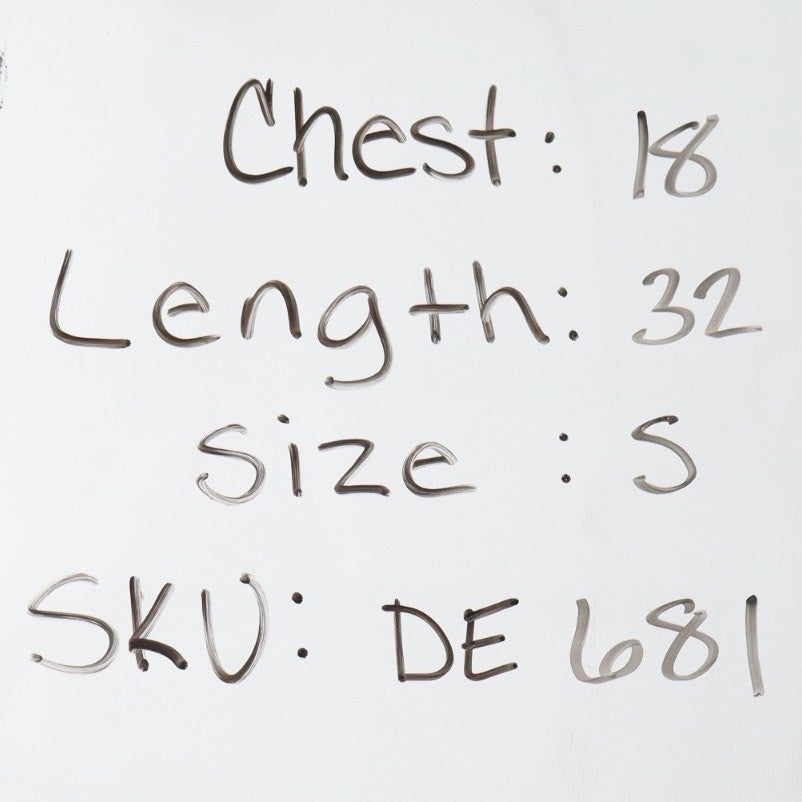 Chest: 18
Length: 32
Size : S
SKU: DE 681